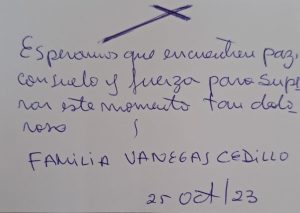 Esperamos que encuentren paz,
consuelo y fuerza para supe
rar este momento tan dolo
roso
FAMILIA VANEGAS CEDILLO
25 oct/23